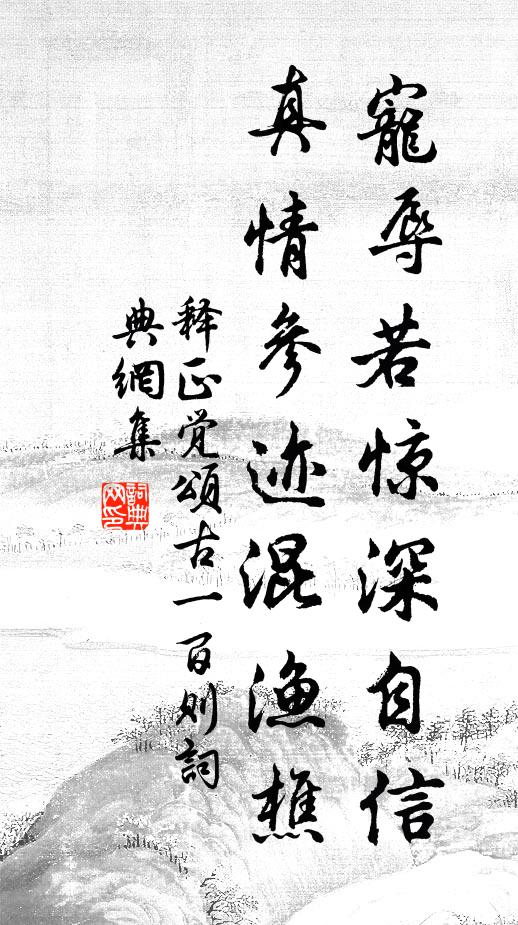 寵辱若惊深自信
真情參迹混渔樵
释正觉頌古一百则詞
典網集
詞典網印